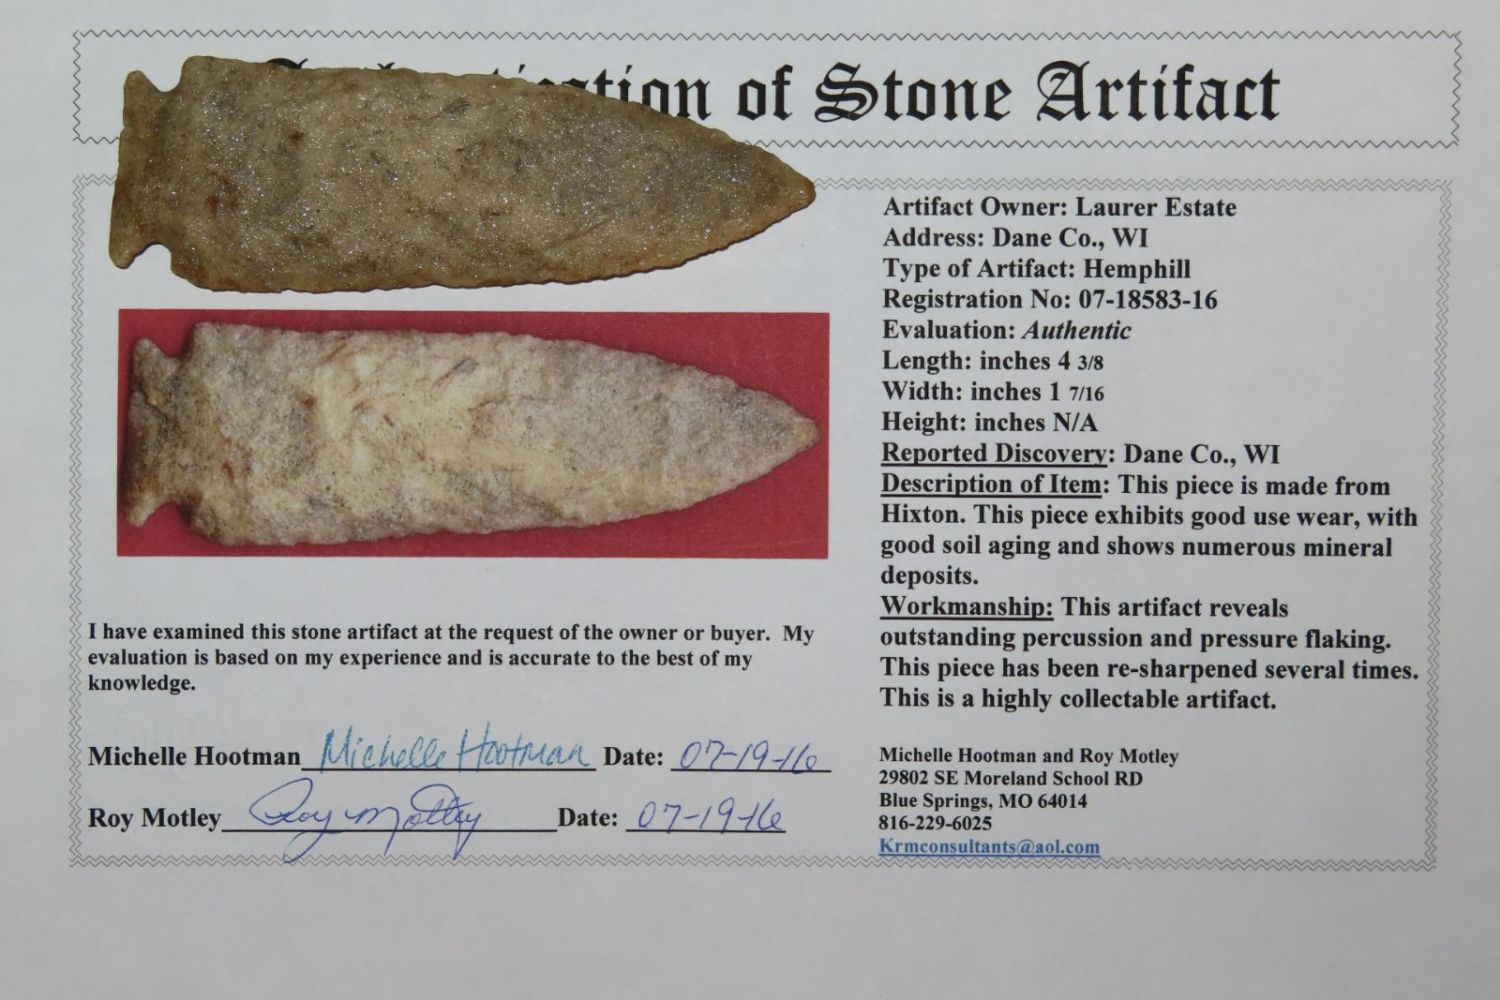 of Stone Artifact
Artifact Owner: Laurer Estate
Address: Dane Co., WI
Type of Artifact: Hemphill
Registration No: 07-18583-16
Evaluation: Authentic
Length: inches 4 3/8
Width: inches 1 7/16
Height: inches N/A
Reported Discovery: Dane Co., WI
Description of Item: This piece is made from
Hixton. This piece exhibits good use wear, with
good soil aging and shows numerous mineral
deposits.
Workmanship: This artifact reveals
outstanding percussion and pressure flaking.
This piece has been re-sharpened several times.
This is a highly collectable artifact.
I have examined this stone artifact at the request of the owner or buyer. My
evaluation is based on my experience and is accurate to the best of my
knowledge.
Michelle Hootman Michelle Hootman Date: 07-19-16
Roy Motley Roy Motley Date: 07-19-16
Michelle Hootman and Roy Motley
29802 SE Moreland School RD
Blue Springs, MO 64014
816-229-6025
Krmconsultants@aol.com